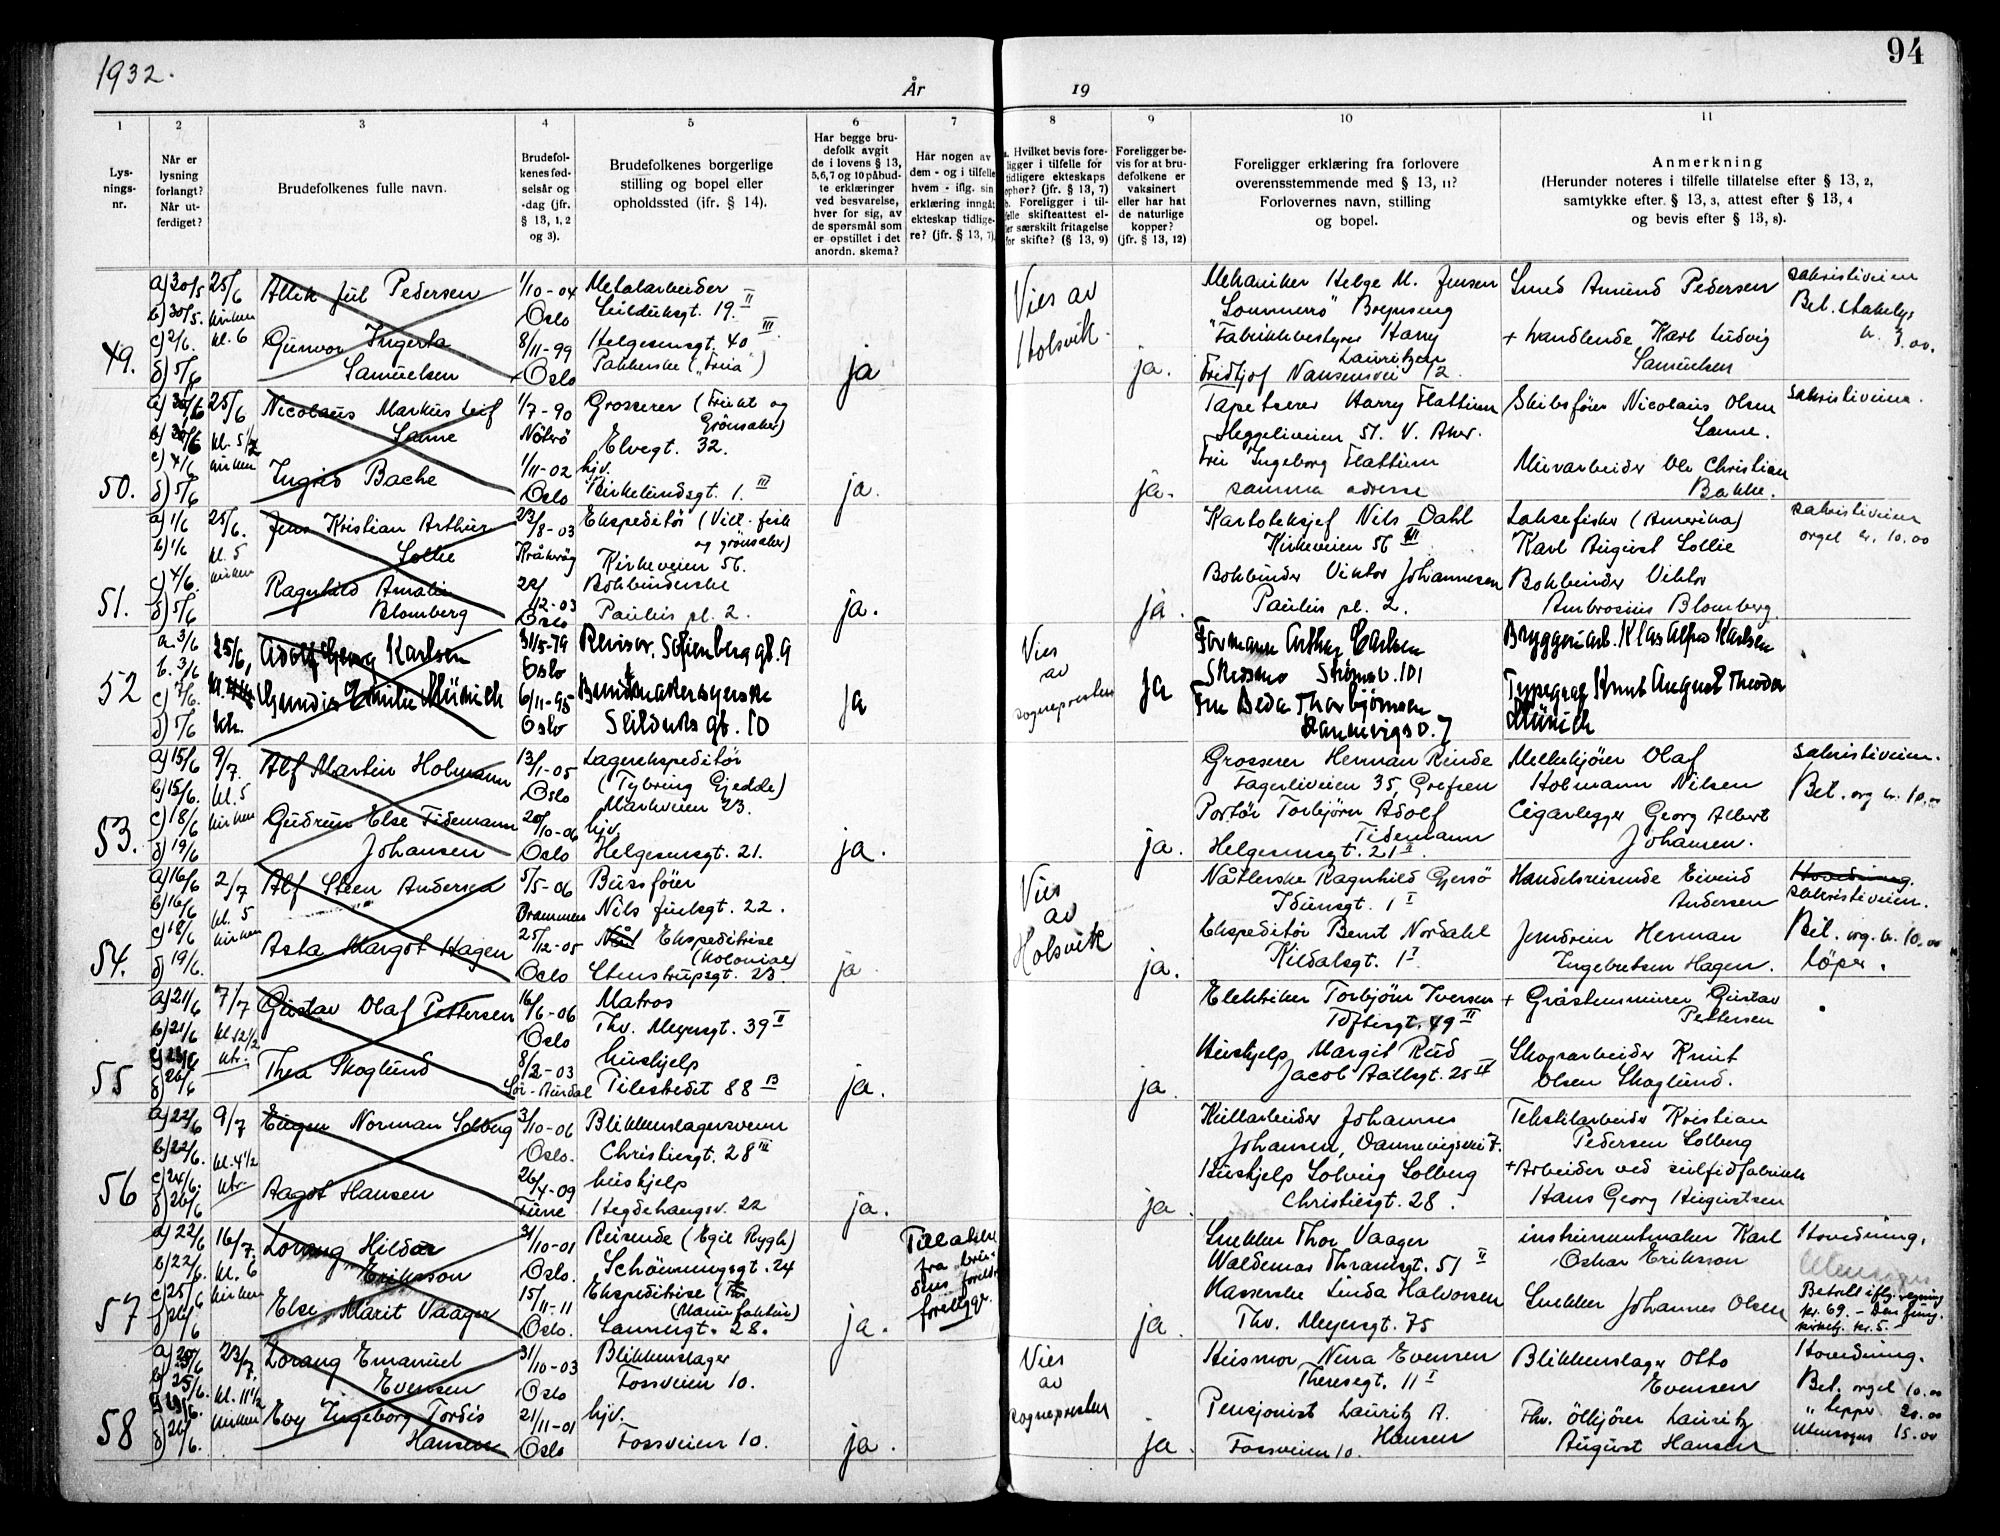 1932.
År
19
94
1
2
3
4
5
6
7
8
9
10
11
Lys-
nings-
nr.
Når er
lysning
forlangt?
Når ut-
ferdiget?
Brudefolkenes fulle navn.
Brudefol-
kenes fød-
selsår og
-dag (jfr.
§ 13, 1, 2
og 3).
Brudefolkenes borgerlige
stilling og bopel eller
opholdssted (jfr. § 14).
Har begge bru-
defolk avgit
de i lovens § 13,
5, 6, 7 og 10 påbud-
te erklæringer
ved besvarelse,
hver for sig, av
de spørsmål som
er opstillet i det
anordn. skema?
Har nogen av
dem - og i tilfelle
hvem - iflg. sin
erklæring inngåt
ekteskap tidlige-
re? (jfr. § 13, 7)
a. Hvilket bevis fore-
ligger i tilfelle for
tidligere ekteskaps
ophør? (jfr. § 13, 7)
b. Foreligger i til-
felle skifteattest el-
ler særskilt fritagelse
for skifte? (§ 13, 9)
Foreligger be-
vis for at bru-
defolkene er
vaksinert
eller har hat
de naturlige
kopper?
(jfr. § 13, 12)
Foreligger erklæring fra forlovere
overensstemmende med § 13, 11?
Forlovernes navn, stilling
og bopel.
Anmerkning
(Herunder noteres i tilfelle tillatelse efter § 13, 2,
samtykke efter § 13, 3, attest efter § 13, 4
og bevis efter § 13, 8).
49.
a) 30/5 b) 30/5. c) 2/6. d) 5/6
25/6 kirken kl. 6
Pedersen
Gunvor Ingerta
Samuelsen
1/10-04 Oslo
8/11-99 Oslo
Metalarbeider
Seilduksgt. 19. II
Helgesensgt. 40 III
Pakkerske ("Freia")
ja
Vies av
Holsvik.
ja.
Mekaniker Helge M. Jensen
Brynseng
Fabrikkbestyrer Harry
Lauritzen
Fridtjof Nansensvei 12.
Smed Amund Pedersen
+ handlende Karl Ludvig
Samuelsen
sakristiveien
3.00.
50.
25/6 kl. 5 1/2 kirken
Nicolaus Markus Leif
Sanne
Ingrid Bache
1/7-90 Nøtterø
1/11-02 Oslo
Grosserer (Frukt og
Grønsaker)
Elvegt. 32.
hjv.
Kirkelundsgt. 1. III
ja.
ja.
Tapetserer Harry Flattum
Heggeliveien 51. V. Aker.
Frú Ingeborg Flattum
samma adresse
Skibsfører Nicolaus Olsen
Sanne.
Murarbeider Ole Christian
Bakke.
sakristiveien.
51.
a) 1/6 b) 1/6 c) 4/6. d) 5/6
25/6. kl. 5 kirken
Jens Kristian Arthur
Sollie
Ragnhild Amalie
Blomberg
23/8-03 Kråkerøy
22/12-03 Oslo
Ekspeditør (Vilt- fisk
og grønsaker)
Kirkeveien 56.
Bokbinderske
Paulus pl. 2.
ja.
ja.
Kartoteksjef Nils Dahl
Kirkeveien 56 III
Bokbinder Viktor Johannesen
Paulus pl. 2.
Laksefisker (Amerika)
Karl August Sollie
Bokbinder Viktor
Ambrosius Blomberg.
sakristiveien
orgel kr. 10.00
52
a. 3/6 b. 3/6 c) 7/6. d) 5/6
25/6,
Adolf Georg Karlsen
Emilie Münich
31/5-79 Oslo
6/11-95 Oslo
Revisor. Sofienberg gt. 9
Buntmakersyerske
Seilduks gt. 10
ja
Vies
av
sognepresten
ja
Formann Arthur Carlsen
Skedsmo Strømsv. 101
Fru Beda Thorbjørnsen
Dannevigsv. 7
Bryggeriarb. Klas Alfred Karlsen
Typograf Knut August Theodor
Münich
53.
a) 15/6 b) 15/6. c) 18/6 d) 19/6
9/7. kl. 5 kirken
Alf Martin Holmann
Gudrun Else Tidemann
Johansen
13/1-05 Oslo
20/10-06 Oslo
Lagerekspeditør
(Tybring Gjedde)
Markveien 23.
hjv.
Helgesensgt. 21.
ja.
ja.
Grosserer Herman Rinde
Fagerliveien 35, Grefsen
Portør Torbjørn Adolf
Tidemann
Helgesensgt. 21 II
Melkekjører Olaf
Holmann Nilsen
Cigarlegger Georg Albert
Johansen.
sakristiveien.
Bet. org kr. 10.00
54.
a) 16/6 b) 16/6 c) 18/6 d) 19/6.
2/7 kl. 5 kirken
Alf Steen Andersen
Asta Margot Hagen
5/5-06 Drammen
25/12-05 Oslo
Bussfører
Nils Juelsgt. 22.
Ekspeditrise
(kolonial)
Stenstrupsgt. 23.
ja.
Vies
av
Holsvik
ja.
Nåtlerske Ragnhild Gjersø
Idunsgt. 1 I
Ekspeditør Bernt Nordahl
Kildalsgt. 1 I
Handelsreisende Eivind
Andersen
Jerndreier Herman
Ingebretsen Hagen.
Hovedinng.
sakristiveien.
Bet. org. kr. 10.00
løper.
55
a) 21/6 b) 21/6 d) 26/6
7/7 kl. 12 1/2 ktr.
Gustav Olaf Pettersen
Thea Skoglund
16/6-06 Oslo
8/2-03 Sør-Aurdal
Matros
Thv. Meyersgt. 39 II
hushjelp
Pilestredet 88 B
ja.
ja.
Elektriker Torbjørn Iversen
Toftesgt. 49 II
Hushjelp Margit Rud
Jacob Aallsgt. 25 IV
+ Gråstensmurer Gustav
Pettersen
Skogsarbeider Knut
Olsen Skoglund.
56
a) 22/6 b) 22/6. c) 24/6. d) 26/6
9/7 kl. 4 1/2 ktr.
Eugen Norman Solberg
Aagot Hansen
3/10-06 Oslo.
26/4-09 Tune
Blikkenslagersvenn
Christiesgt. 28 III
hushjelp
Hegdehaugsv. 22
ja.
ja.
Kullarbeider Johannes
Johansen, Dannevigsvei 7.
Hushjelp Solveig Solberg
Christiesgt. 28.
Tekstilarbeider Kristian
Pedersen Solberg
+ Arbeider ved sulfidfabrikk
Hans Georg Augustsen
57
a) 22/6 b) 22/6. c) 25/6 d) 26/6
16/7. kl. 6 kirken
Lorang Hildar
Eriksson
Else Marit Vaager
31/10-01 Oslo.
15/11-11 Oslo.
Reisende (Egil Rygh)
Schønningsgt. 24
Ekspeditrise
(Manufaktur)
Sannergt. 28.
ja.
Tillatelse
fra bru-
dens foreldre
foreligger.
ja.
Snekker Thor Vaager
Waldemar Thranesgt. 51 II
Kasserske Linda Halvorsen
Thv. Meyersgt. 75
instrumentmaker Karl
Oskar Eriksson
Snekker Johannes Olsen
Hovedinng.
Betalt iflg. regning
kr. 69. - Den
kirketj. kr. 5.-
58
23/7. kl. 11 1/2 kirken
Lorang Emanuel
Evensen
Evy Ingeborg Tordis
Hansen
31/10-03 Oslo
21/11-01 Oslo
Blikkenslager
Fossveien 10.
hjv.
Fossveien 10.
ja.
Vies
av
sognepresten
ja.
Husmor Nina Evensen
Theresegt. 11 I
Pensjonist Lauritz A.
Hansen
Fossveien 10.
Blikkenslager Otto
Evensen
Fhv. ølkjører Lauritz
August Hansen
Hovedinng.
Bet. orgel 10.00
" tepper 20.00
15.00